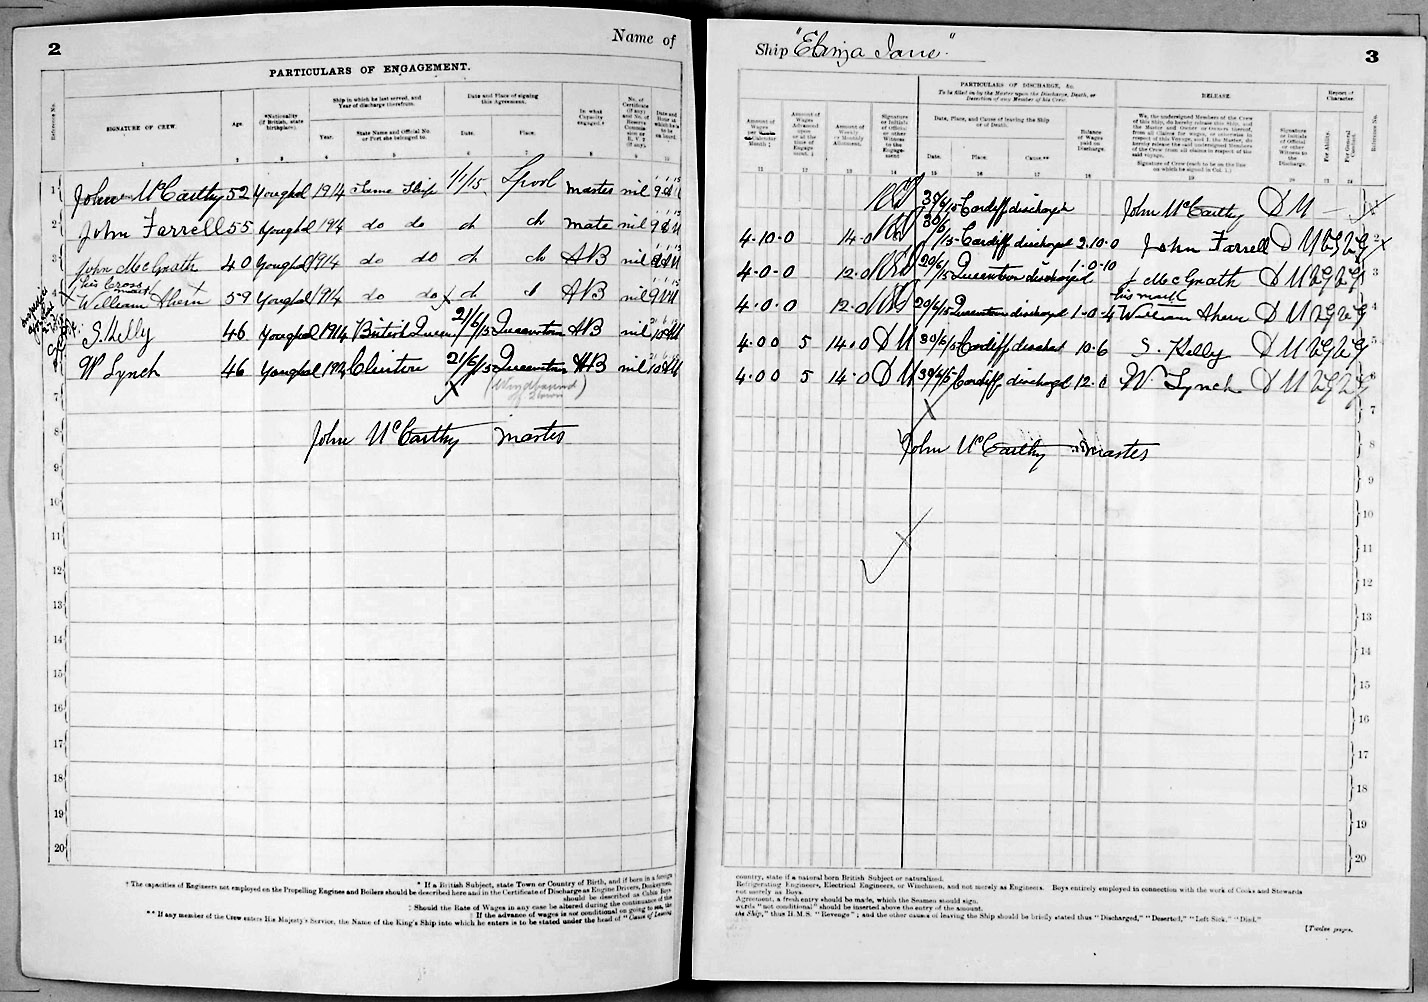 2
Name of
PARTICULARS OF ENGAGEMENT.
Reference No.
SIGNATURE OF CREW.
Age.
*Nationality (if British, state birthplace).
Ship in which he last served, and Year of discharge therefrom.
Year.
State Name and Official No. or Port she belonged to.
Date and Place of signing this Agreement.
Date.
Place.
In what Capacity engaged.†
No. of Certificate (if any) and No. of Reserve Commission or R.V.2 (if any).
Date and Hour at which he is to be on board.
1 2 3 4 5 6 7 8 9 10
1 John McCarthy 52 Youghal 1914 Same Ship 1/1/15 Lpool master nil 9 AM
2 John Farrell 55 Youghal 1914 do do do do mate nil 9 AM
3 John McGrath 40 Youghal 1914 do do do do AB nil 9 AM
his Cross mark
4 William Ahern 59 Youghal 1914 do do x d d AB nil 9 AM
5 S. Kelly 46 Youghal 1914 British Queen 21/6/15 Queenstown AB nil 10 AM
6 W Lynch 46 Youghal 1914 Clinton 21/6/15 Queenstown AB nil 10 AM
(Windbound
7
8 John McCarthy master
9
10
11
12
13
14
15
16
17
18
19
20
* If a British Subject, state Town or Country of Birth, and if born in a foreign
† The capacities of Engineers not employed on the Propelling Engines and Boilers should be described here and in the Certificate of Discharge as Engine Drivers, Donkeymen,
should be described as Cabin Boys
‡ Should the Rate of Wages in any case be altered during the continuance of this
‡ If the advance of wages is not conditional on going to sea, the
** If any member of the Crew enters His Majesty's Service, the Name of the King's Ship into which he enters is to be stated under the head of "Causes of Leaving
Ship "Eliza Jane"
3
PARTICULARS OF DISCHARGE, &c.
To be filled in by the Master upon the Discharge, Death, or Desertion of any Member of his Crew.
RELEASE.
Report of Character.
Amount of Wages per Calendar Month ‡
Amount of Wages Advanced upon or at the time of Engagement. ‡
Amount of Weekly or Monthly Allotment.
Signature or Initials of Official or other Witness to the Engagement
Date, Place, and Cause of leaving the Ship or of Death.
Date.
Place.
Cause.**
Balance of Wages paid on Discharge.
We, the undersigned Members of the Crew of this Ship, do hereby release this Ship, and the Master and Owner or Owners thereof, from all Claims for wages, or otherwise in respect of this Voyage, and I, the Master, do hereby release the undersigned Members of the Crew from all claims in respect of the said voyage.
Signature of Crew (each to be on the line on which he signed in Col. 1.)
Signature or Initials of Official or other Witness to the Discharge.
For Ability.
For General Conduct.
Reference No.
11 12 13 14 15 16 17 18 19 20 21 22
30/6/15 Cardiff discharged John McCarthy D M — 1
4.10.0 14.0 30/6/15 Cardiff discharged 2.10.0 John Farrell D M VG VG 2
4-0-0 12.0 29/6/15 Queenstown discharged 1-0-10 J McGrath D M VG VG 3
his mark
4.0.0 12.0 29/6/15 Queenstown discharged 1-0-4 William Ahern D M VG VG 4
4.00 5 14.0 D M 30/6/15 Cardiff discharged 10.6 S. Kelly D M VG VG 5
4.00 5 14.0 D M 30/6/15 Cardiff, discharged W. Lynch D M VG VG 6
7
John McCarthy master 8
9
10
11
12
13
14
15
16
17
18
19
20
country, state if a natural born British Subject or naturalized.
Refrigerating Engineers, Electrical Engineers, or Winchmen, and not merely as Engineers. Boys entirely employed in connection with the work of Cooks and Stewards
not merely as Boys.
Agreement, a fresh entry should be made, which the Seamen should sign.
words "not conditional" should be inserted above the entry of the amount.
the Ship," thus H.M.S. "Revenge"; and the other causes of leaving the Ship should be briefly stated thus "Discharged," "Deserted," "Left Sick," "Died."
[Twelve pages.